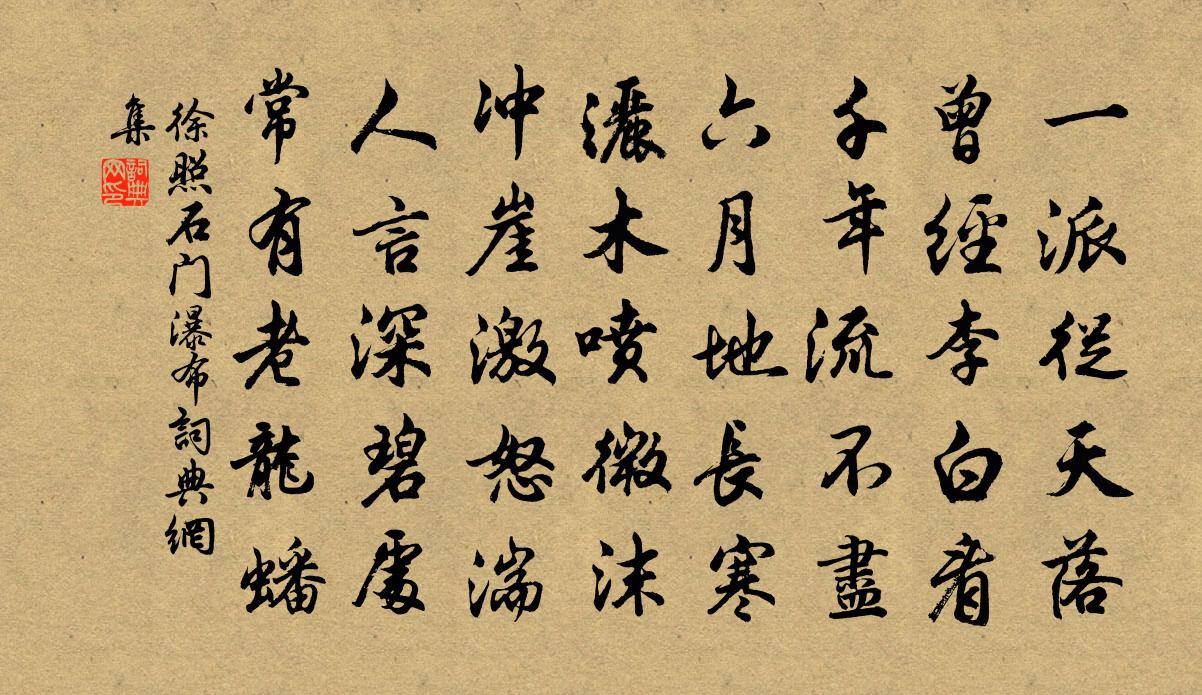 一派從天落
曾經李白看
千年流不盡
六月地長寒
灑木噴微沫
冲崖激怒湍
人言深碧處
常有老龍蟠
徐照石门瀑布詞典網
集
詞典
网印